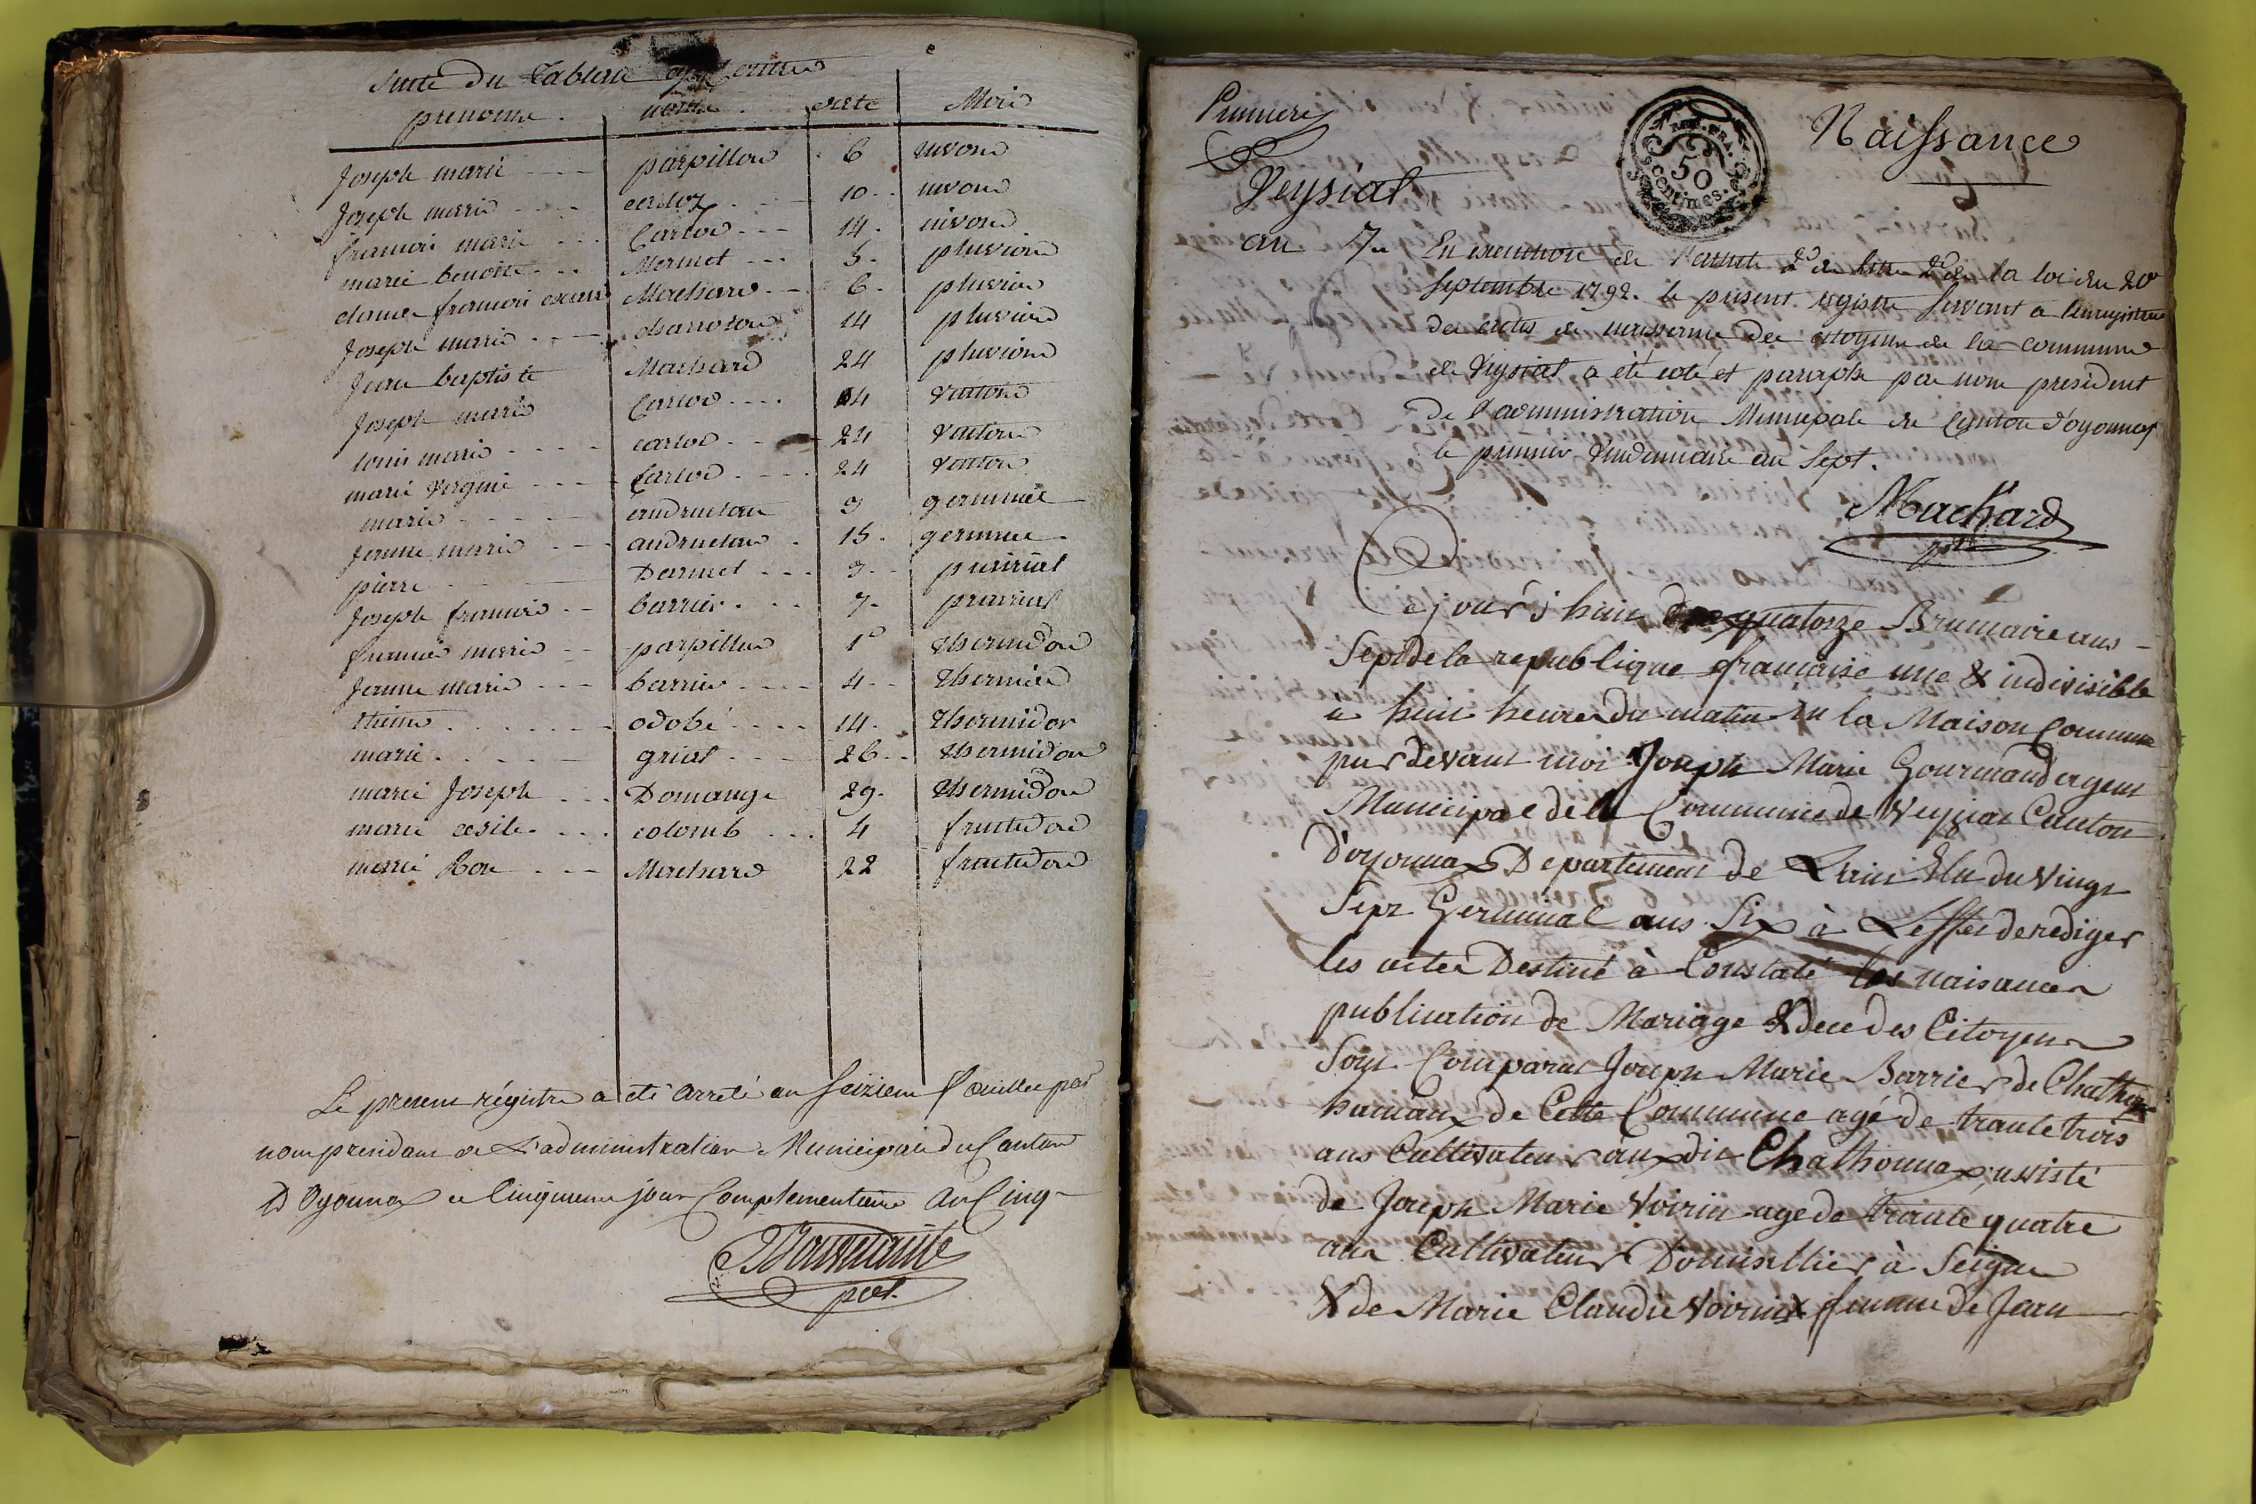 Suite du Tableau
prenoms noms date Mois
Joseph marie parpillon 6 nivose
Joseph marie carloz 10 nivose
francois marie Carloz 14 nivose
marie benoite Mermet 5 pluviose
claude francois Machard 6 pluviose
Joseph marie 14 pluviose
Jean baptiste Machard 24 pluviose
Joseph marie Carloz 14 ventose
louis marie carloz 24 ventose
marie virginie Carloz 24 ventose
marie 9 germinal
Jeanne marie 15 germinal
pierre Darmet 9 prairial
Joseph francois barrier 7 prairial
marie parpillon 1er thermidor
Jeanne marie barrier 4 thermidor
odobé 14 thermidor
marie grias 26 thermidor
marie Joseph Domange 29 thermidor
marie cesile colomb 4 fructidor
marie Rose Machard 22 fructidor
Le present régistre a eté arreté au seizieme feuillet par
nous president de L'administration Municipal du Canton
D'Oyonnax ce Cinquieme jour Complementaire An Cinq
pdt.
Premiere
Veysiat
an 7e
REP. FRA.
50
centimes.
Naissance
En execution de l'article 2e du titre 2e de la loi du 20
septembre 1792. le present registre servant a l'enregistrement
des actes de naissance des citoyens de la commune
de Veysiat a été coté et paraphé par nous président
de l'administration Municipale du Canton d'oyonnax
le premier Vendemiaire an sept.
Machard
pdt
Ce jourd'huit quatorze Brumaire ans
Sept de la republique francaise une & indivisible
a huit heures du matin en la Maison Commune
par devant moi Joseph Marie Gourmand agent
Municipal de la Commune de Veyziat Canton
D'oyonnax Departement de Lain Elu du Vingt
Sept Germinal ans Six à Leffet de rediger
les actes Destiné à Constaté les naisances
publication de Mariage & deces des Citoyens
Sont Comparus Joseph Marie Barrier de Chathonnax
hameaux de Cette Commune agé de trante trois
ans Cultivateur aux dit Chathonnax, assisté
de Joseph Marie Voirin age de trante quatre
ans Cultivateur Domisillier à
& de Marie Claudie Voirin femme de Jean